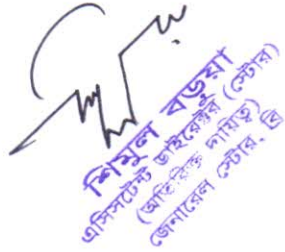 শিমুল বড়ুয়া
এসিসটেন্ট ডাইরেক্টর (স্টোর)
(অতিরিক্ত দায়িত্ব)
জেনারেল স্টোর,